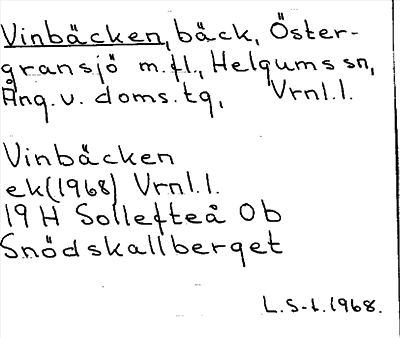 Vinbäcken, bäck, Öster-
gransjö m.fl., Helgums sn,
Ång.v. doms.tg, Vrnl.l.
Vinbäcken
ek(1968) Vrnl.l.
19 H Sollefteå Ob
Snödskallberget
L.S-t. 1968.